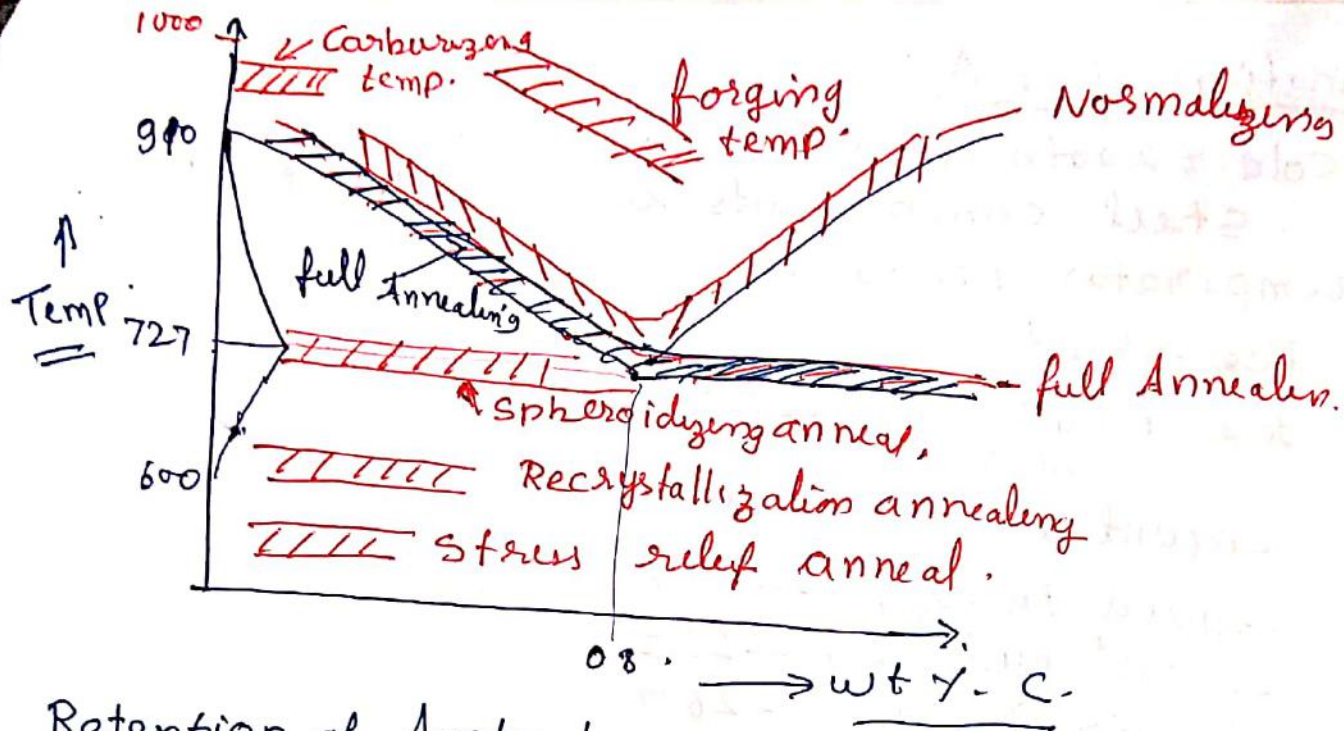 1000
Carburizing
temp.
forging
temp.
Normalizing
910
full Annealing
↑
Temp.
727
full Annealin.
Spheroidizing anneal.
600
Recrystallization annealing
Stress relief anneal.
0.8.
→ wt %. C.
Retention of